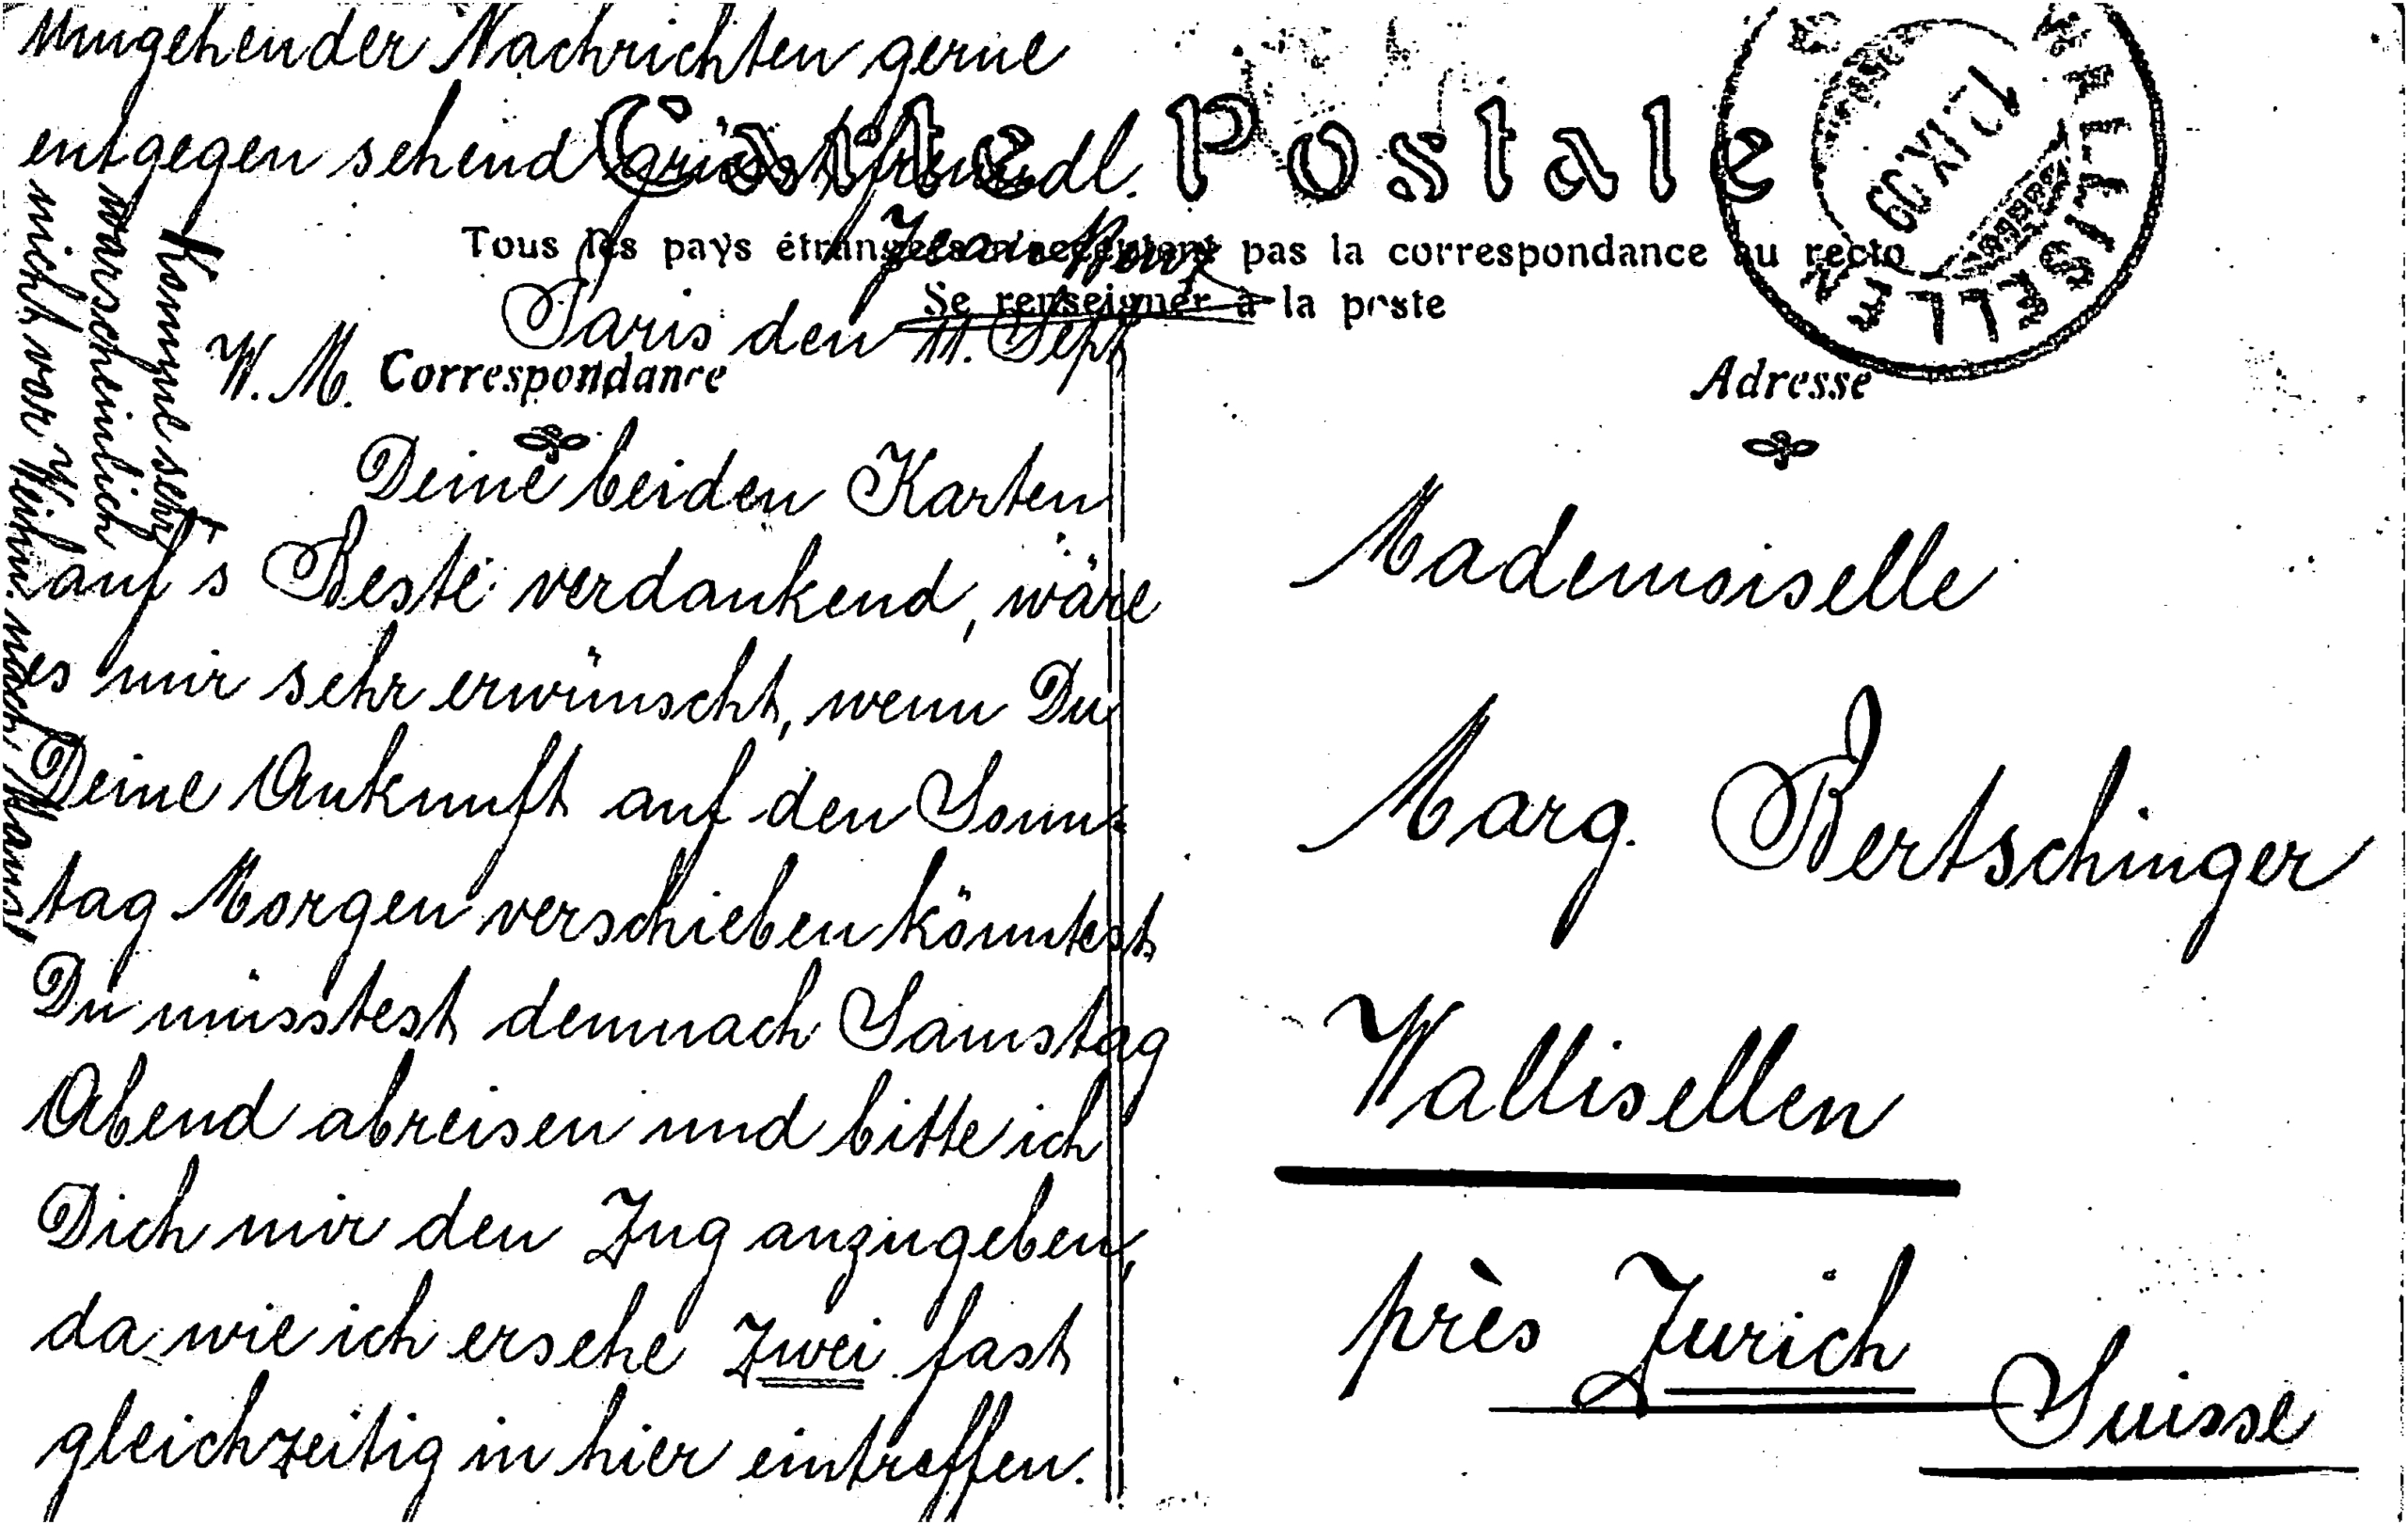 Umgehender Nachrichten gerne
entgegen sehend grüsst freundl.
Carte Postale
Tous les pays étrangers n'acceptent pas la correspondance au recto
Se renseigner à la poste
Paris den 11. Sept
W. M.
Correspondance
Deine beiden Karten
auf's Beste verdankend, wäre
es mir sehr erwünscht, wenn Du
Deine Ankunft auf den Sonn=
tag Morgen verschieben könntest
Du müsstest demnach Samstag
Abend abreisen und bitte ich
Dich mir den Zug anzugeben,
da wie ich ersehe zwei fast
gleichzeitig in hier eintreffen.
Komme sehr
warscheinlich
nicht vor Weihn. nach
Adresse
Mademoiselle
Marg. Bertschinger
Wallisellen
près Zurich
Suisse
WALLISELLEN
12.IX.09